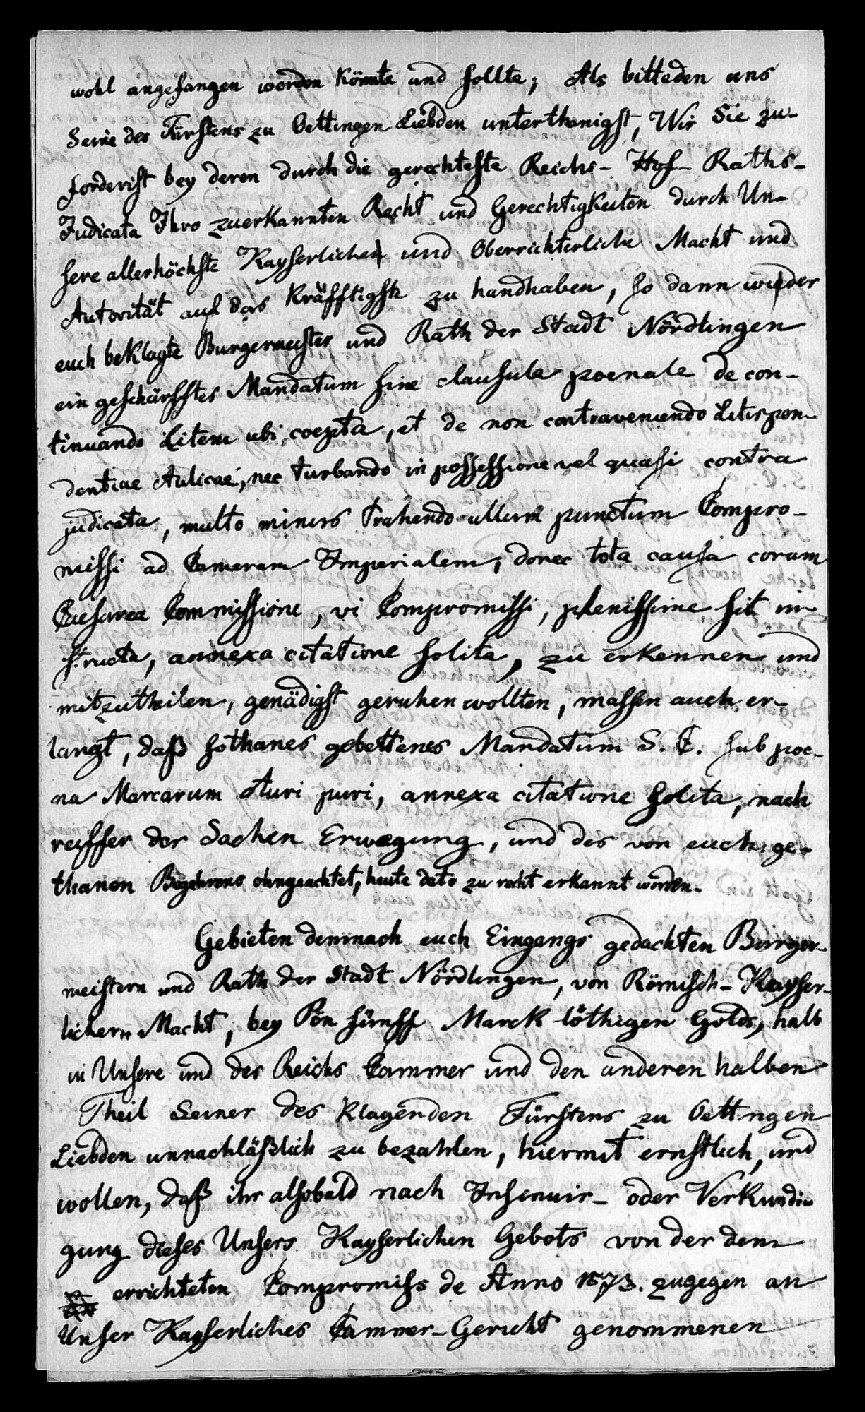 wohl angefangen worden Könnte und sollte; Als bitteden uns
Seine des Fürstens zu Oettingen Liebden unterthänigst, Wir Sie zu-
forderist bey deren durch die gerechteste Reichs-Hof-Raths-
Judicata Ihro zuerkannten Recht und Gerechtigkeiten durch Un-
sere allerhöchste Kayserlichen und Oberrichterliche Macht und
Autorität auf das Kräfftigste zu handhaben, so dann wieder
euch beKlagte Burgermeister und Rath der Stadt Nördlingen
ein geschärfftes Mandatum sine clausula poenale de con-
tinuando Litem ubi coepta, et de non contraveniendo Litispen-
dentiae Aulicae, nec turbando in possessione vel quasi contra
judicata, multo minus Trahendo ullum punctum Compro-
missi ad Cameram Imperialem, donec tota causa coram
Caesarea Commissione, vi Compromissi, plenissime sit in-
structa, annexa citatione solita, zu erkennen und
mitzutheilen, genädigst geruhen wollten, massen auch er-
langt, daß sothanes gebettenes Mandatum S. C. sub poe-
na Marcarum Auri puri, annexa citatione solita, nach
reiffer der Sachen Erwegung, und des von euch ge-
thanen Begehrens ohngeachtet, heute dato zu recht erkannt worden.
Gebieten demnach euch Eingangs gedachten Burger-
meistern und Rath der Stadt Nördlingen, von Römisch-Kayser-
lichern Macht, bey Pön fünff Marck löthigen Golds, halb
in Unsere und des Reichs Cammer und den anderen halben
Theil Seiner des Klagenden Fürstens zu Oettingen
Liebden unnachläßlich zu bezahlen, hiermit ernstlich, und
wollen, daß ihr alsobald nach Insinuir- oder VerKundi-
gung dieses Unsers Kayserlichen Gebots von der dem
errichteten Compromiss de Anno 1573. zugegen an
Unser Kayserliches Cammer-Gericht genommenen